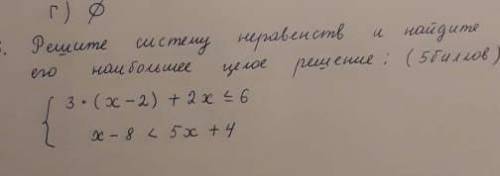 г) ∅
3. Решите систему неравенств и найдите
его наибольшее целое решение: (5баллов)
3·(x-2) + 2x ≤ 6
x-8 < 5x + 4